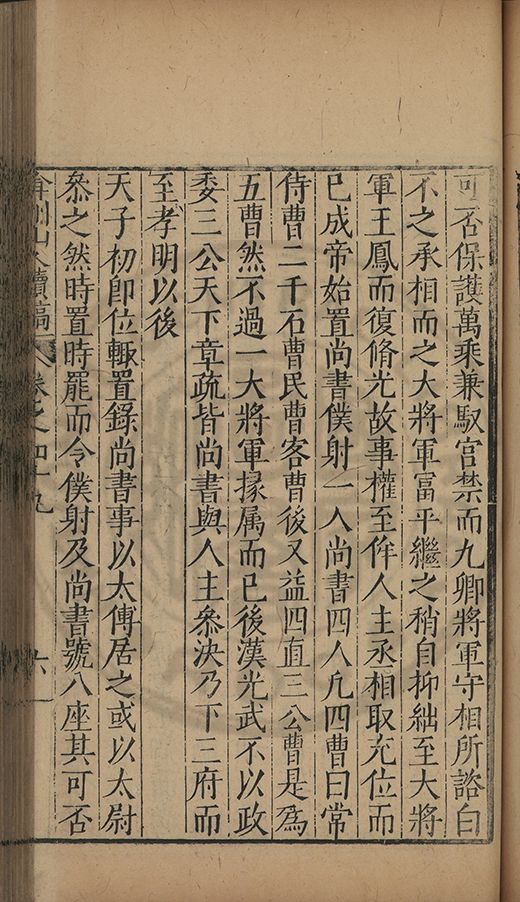 可否保護萬乘兼馭宮禁而九卿將軍守相所諮白
不之承相而之大將軍冨平繼之稍自抑絀至大將
軍王鳳而復脩光故事權至侔人主丞相取充位而
已成帝始置尚書僕射一人尚書四人凢四曹曰常
侍曹二千石曹民曹客曹後又益四直三公曹是爲
五曹然不過一大將軍掾属而已後漢光武不以政
委三公天下章疏皆尚書與人主叅決乃下三府而
至孝明以後
天子初卽位輙置錄尚書事以太傅居之或以太尉
叅之然時置時罷而令僕射及尚書號八座其可否
弇州山人續稿 卷之四十九 六